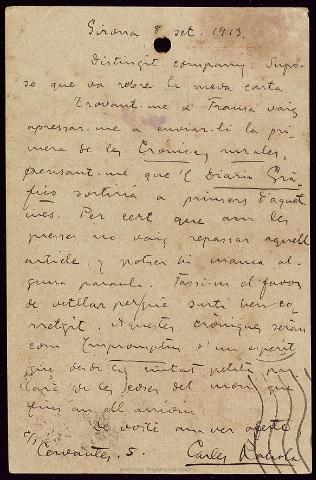 Girona 8 set. 1913.
Distingit company: Supo-
so que va rebre la meva carta.
Trovant-me a Fransa vaig
apressar-me a enviar-li la pri-
mera de les Cròniques rurales,
pensant-me que'l Diario Grá-
fico sortiria a primers d'aquet
mes. Per cert que am les
presses no vaig repassar aquell
article, y potser hi manca al-
guna paraula. Fassi'm el favor
de vetllar perquè surti ben co-
rretgit. Aquestes cròniques seràn
com Impromptus d'un esperit
que desde la ciutat petita par-
larà de les coses del mon que
fins an ell arriven.
De vostè am ver afecte
Carles Rahola
s/c Cervantes, 5.